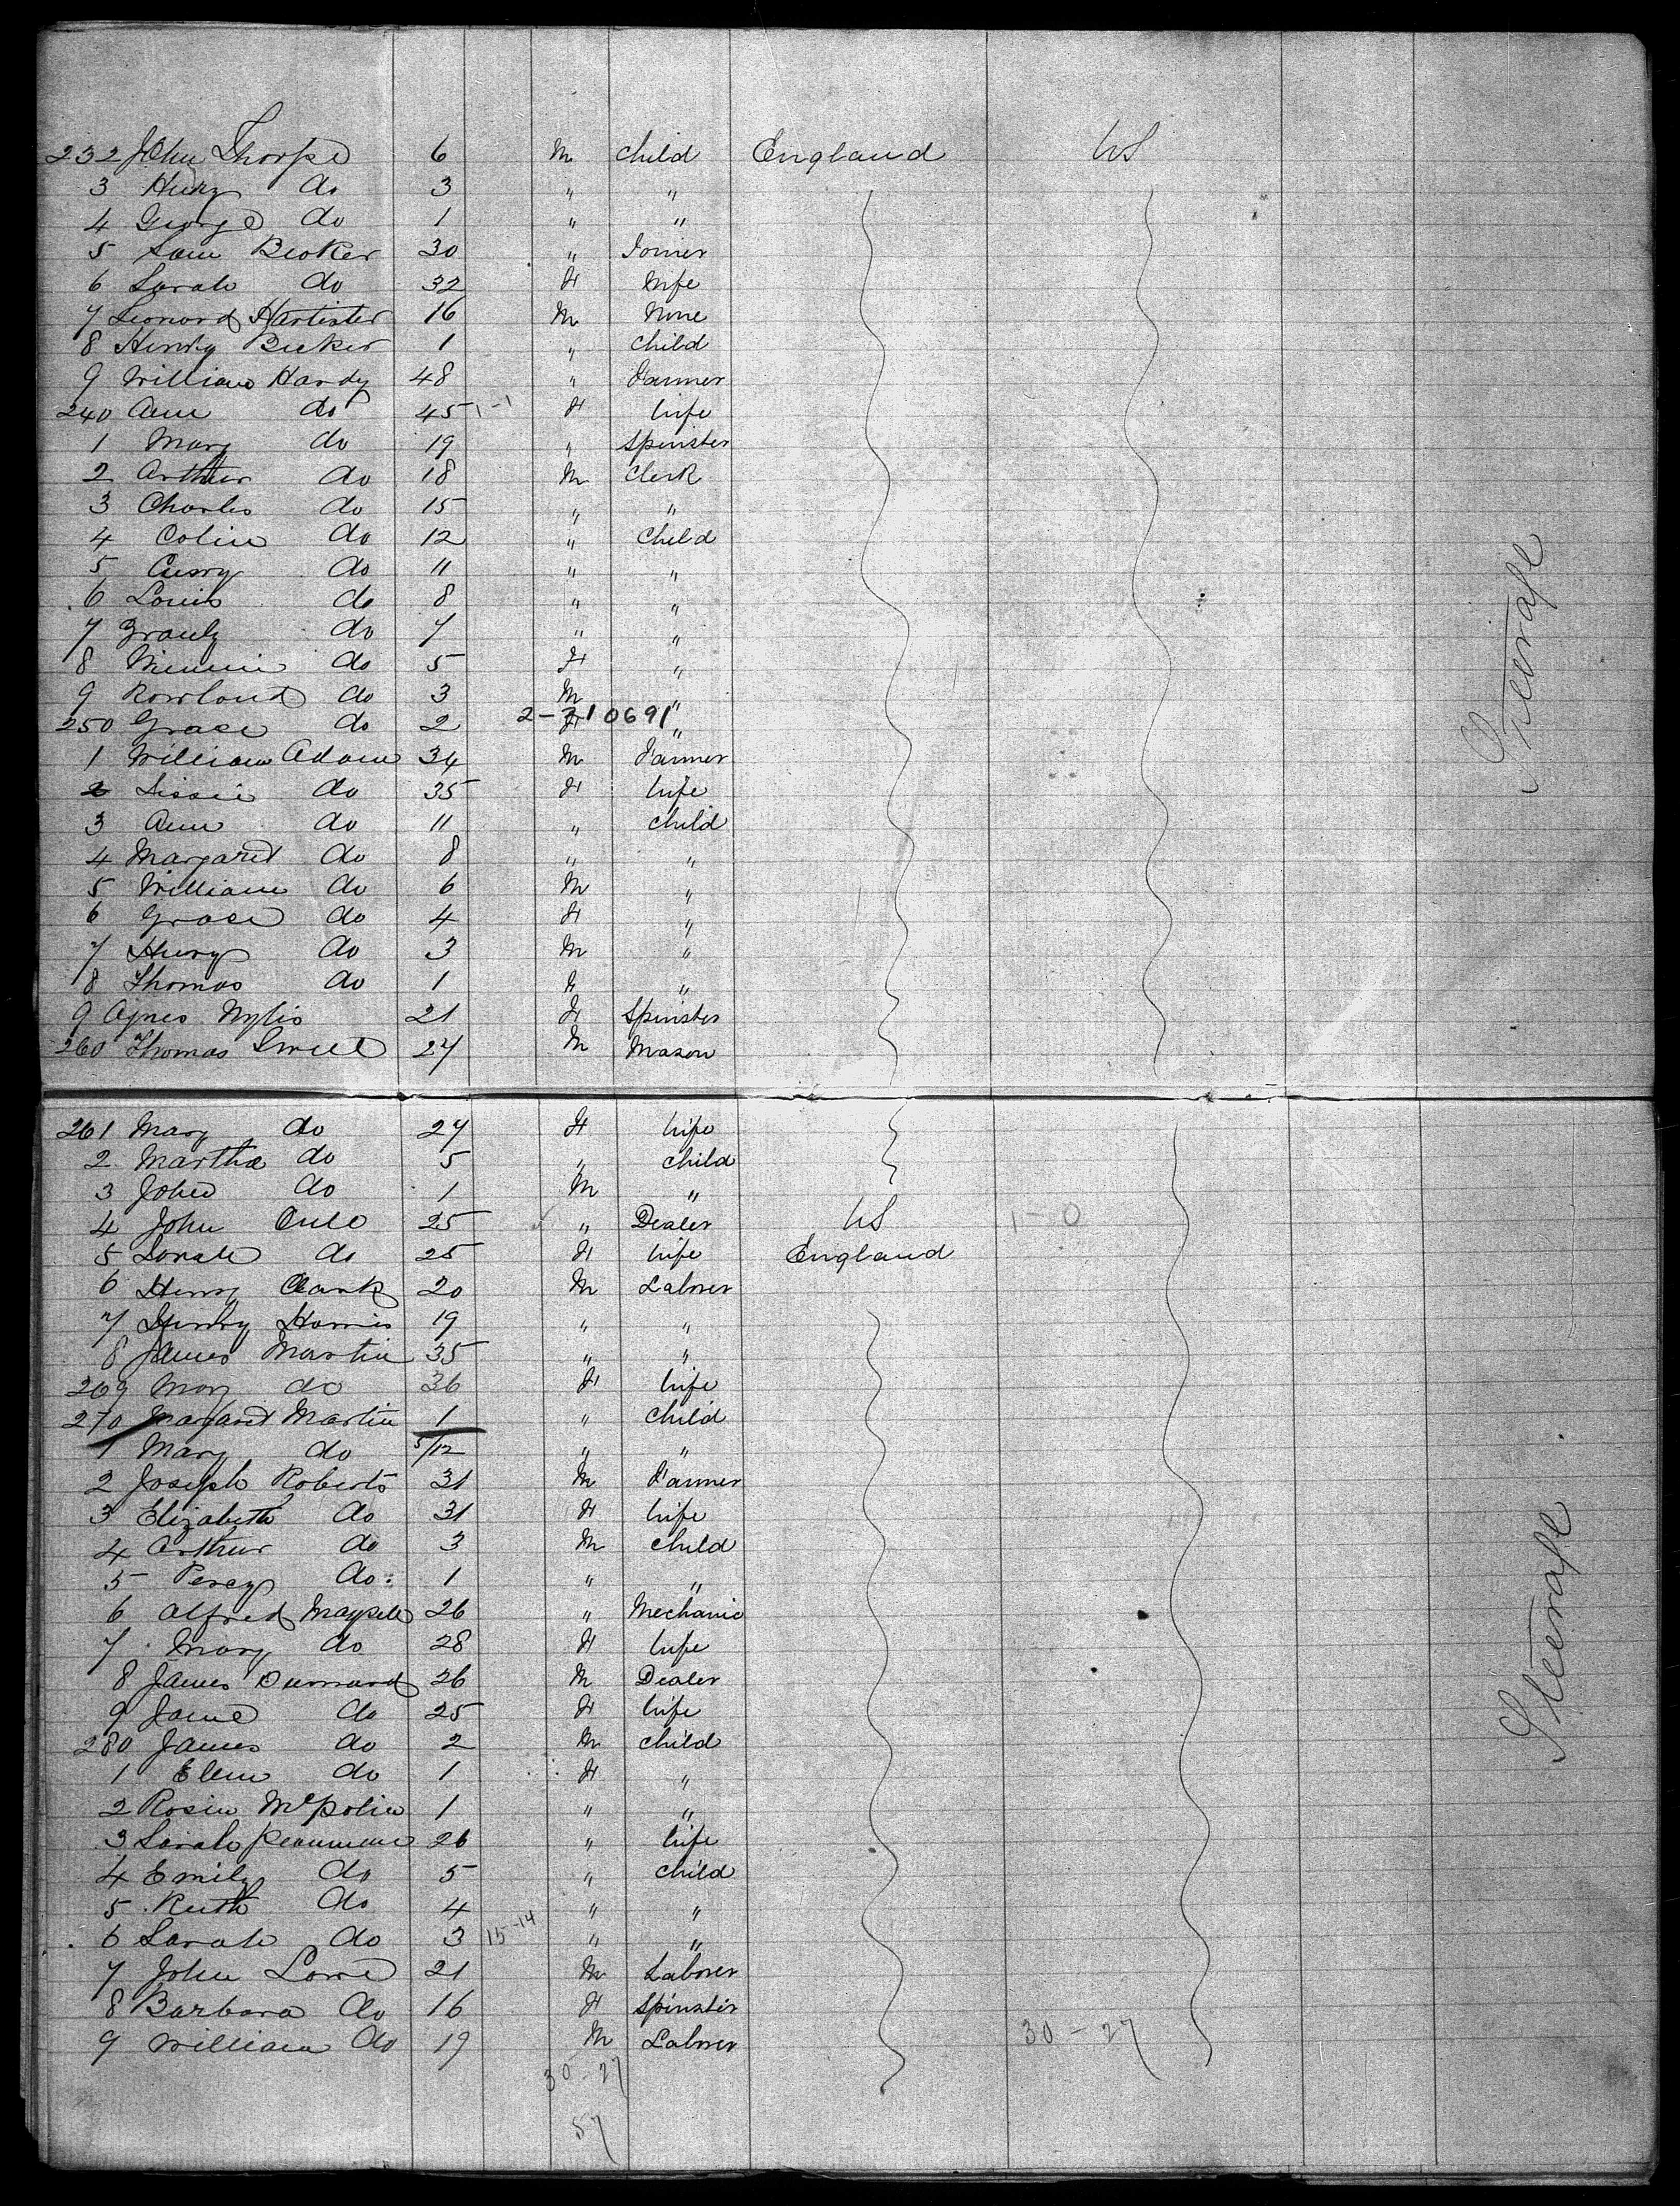 232 John Thorpe 6 M child England US
3 Henry do 3 " "
4 George do 1 " "
5 Sam Becker 30 " Joiner
6 Sarah do 32 F Wife
7 Leonard 16 M None
8 Henry Becker 1 " child
9 William Hardy 48 " Farmer
240 Ann do 45 1-1 F Wife
1 Mary do 19 " Spinster
2 Arthur do 18 M Clerk
3 Charles do 15 " "
4 Colin do 12 " Child
5 do 11 " "
6 Louis do 8 " "
7 do 7 " "
8 Minnie do 5 F "
9 Rowland do 3 M "
2-210691
250 Grace do 2 F "
1 William Adam 34 M Farmer
2 Lissie do 35 F Wife
3 Ann do 11 " child
4 Margaret do 8 " "
5 William do 6 M "
6 Grace do 4 F "
7 Henry do 3 M "
8 Thomas do 1 "
9 Agnes Wylis 21 F Spinster
260 Thomas 27 M Mason
Steerage
261 Mary do 27 F Wife
2 Martha do 5 " child
3 John do 1 M "
4 John 25 " Dealer US 1-0
5 Sarah do 25 F Wife England
6 Henry Clark 20 M Labrer
7 Henry Harris 19 " "
8 James Martin 35 " "
269 Mary do 36 F Wife
270 Margaret Martin 1 " child
1 Mary do 5/12 " "
2 Joseph Roberts 31 M Farmer
3 Elizabeth do 31 F Wife
4 Arthur do 3 M child
5 Percy do 1 " "
6 Alfred 26 " Mechanic
7 Mary do 28 F Wife
8 James 26 M Dealer
9 Jane do 25 F Wife
280 James do 2 M child
1 Ellen do 1 F "
2 Rosin 1 " "
3 Sarah 26 " Wife
4 Emily do 5 " child
5 Ruth do 4 " "
6 Sarah do 3 15-14 " "
7 John Lowe 21 M Labrer
8 Barbara do 16 F Spinster
9 William do 19 M Labrer 30-27
30-27
57
Steerage